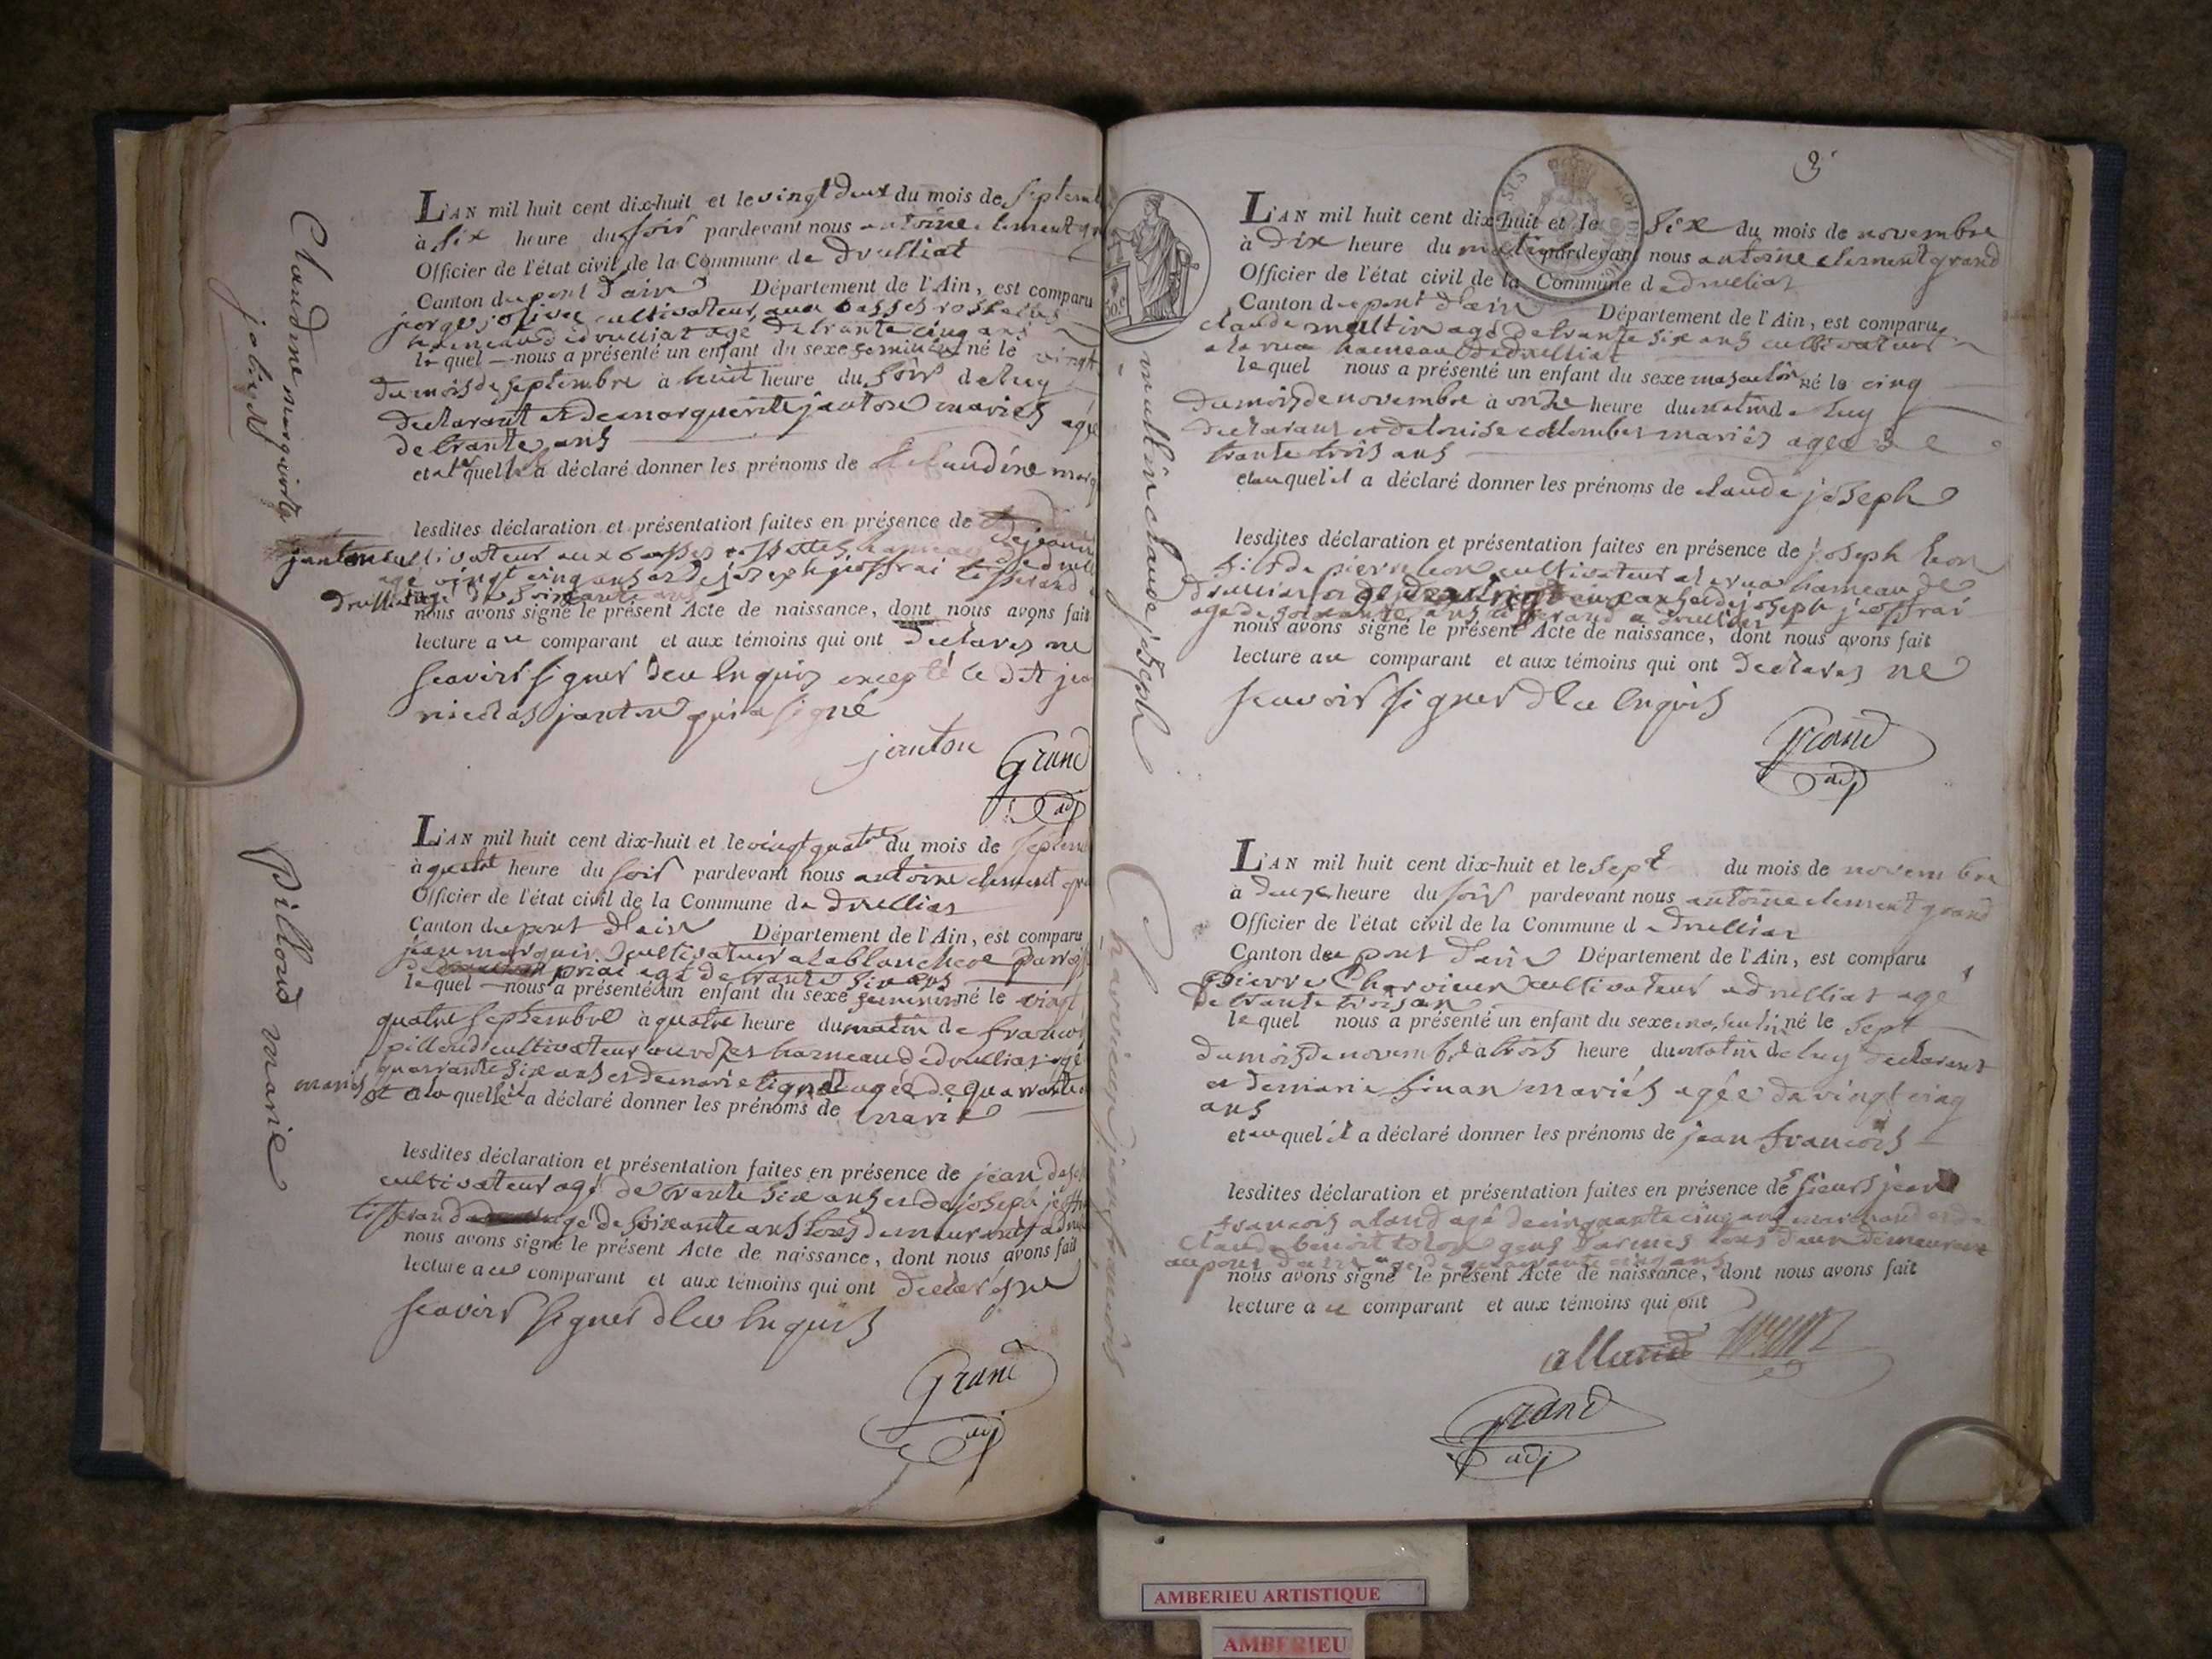 Claudine margueritte
jolivet
L'AN mil huit cent dix-huit et le vingt deux du mois de Septemb
à six heure du soir pardevant nous antoine clement gr
Officier de l'état civil de la Commune de druilliat
Canton du pont d'ain Département de l'Ain, est comparu
jorge jolivet cultivateur aux basses
hameau de druilliat agé de trante cinq ans
le quel nous a présenté un enfant du sexe feminin né le vingt
du mois de septembre à huit heure du soir de luy
declarant et de marguerite janton mariés agé
de trante ans
et a quelle a déclaré donner les prénoms de claudine marg
lesdites déclaration et présentation faites en présence de
janton cultivateur aux basses hameau
agé vingt cinq ans et de joseph tisserand
druilliat agé de soixante ans
nous avons signé le présent Acte de naissance, dont nous avons fait
lecture au comparant et aux témoins qui ont declares ne
scavoir signer d'eu enquis excepté le dit jea
nicolas janton qui a signé
janton Grand
adj
pilloud marie
L'AN mil huit cent dix-huit et le vingt quatre du mois de septem
à heure du soir pardevant nous antoine clement gra
Officier de l'état civil de la Commune de druilliat
Canton du pont d'ain Département de l'Ain, est comparu
jean cultivateur a la blanchere
priai agé de trante six ans
le quel nous a présenté un enfant du sexe feminin né le vingt
quatre septembre à quatre heure du matin de francois
pilloud cultivateur hameau de druilliat agé
quarante six ans et de marie agée de quarante
mariés et a la quelle il a déclaré donner les prénoms de marie
lesdites déclaration et présentation faites en présence de jean
cultivateur agé de trante six ans et de joseph
tisserand agé de soixante ans demeurant a
nous avons signé le présent Acte de naissance, dont nous avons fait
lecture au comparant et aux témoins qui ont declares ne
scavoir signer d'eu enquis
Grand
adj
multin claude joseph
L'AN mil huit cent dix-huit et le six du mois de novembre
à dix heure du matin pardevant nous antoine clement grand
Officier de l'état civil de la Commune de druilliat
Canton du pont d'ain Département de l'Ain, est comparu
claude multin agé de trante six ans cultivateur
a la rua hameau de druilliat
le quel nous a présenté un enfant du sexe masculin né le cinq
du mois de novembre à onze heure du matin de luy
declarant et de louise collomber mariés agée de
trante trois ans
et au quel il a déclaré donner les prénoms de claude joseph
lesdites déclaration et présentation faites en présence de joseph
fils de pierre cultivateur a la rua hameau de
druilliat agé de ans et de joseph
agé de soixante ans tisserand a druilliat
nous avons signé le présent Acte de naissance, dont nous avons fait
lecture au comparant et aux témoins qui ont declares ne
scavoir signer d'eu enquis
Grand
adj
Charvieux jean francois
L'AN mil huit cent dix-huit et le sept du mois de novembre
à deuze heure du soir pardevant nous antoine clement grand
Officier de l'état civil de la Commune de druilliat
Canton du pont d'ain Département de l'Ain, est comparu
pierre Charvieux cultivateur a druilliat agé
de trante trois an
le quel nous a présenté un enfant du sexe masculin né le sept
du mois de novembre a trois heure du matin de luy declarant
et de marie mariés agée de vingt cinq
ans
et au quel il a déclaré donner les prénoms de jean francois
lesdites déclaration et présentation faites en présence de sieurs jean
francois aland agé de cinquante cinq ans marchand et de
claude benoit gens d'armes tous deux demeurant
au pont d'ain agé de quarante cinq ans
nous avons signé le présent Acte de naissance, dont nous avons fait
lecture au comparant et aux témoins qui ont
alland
Grand
adj
AMBERIEU ARTISTIQUE
AMBERIEU